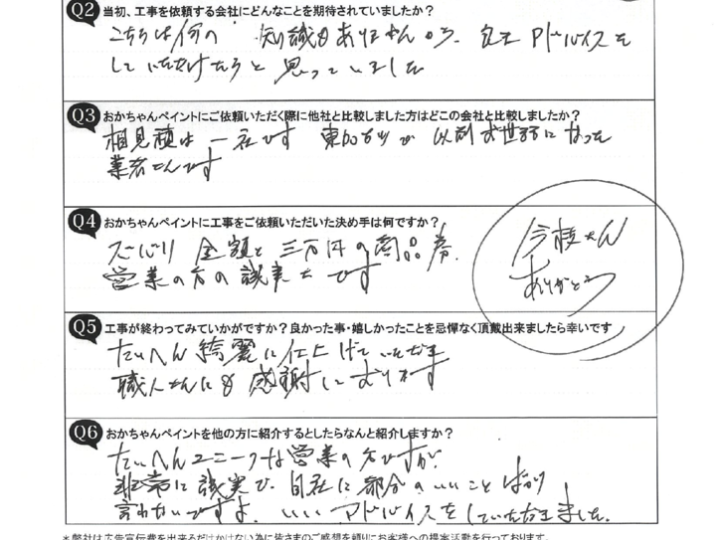 Q2 当初、工事を依頼する会社にどんなことを期待されていましたか？
こちらは何の 知識もありませんから、良き アドバイスを
していただけたらと 思っていました
Q3 おかちゃんペイントにご依頼いただく際に他社と比較しました方はどこの会社と比較しましたか？
相見積は 一社です 以前お世話になった
業者さんです
Q4 おかちゃんペイントに工事をご依頼いただいた決め手は何ですか？
ズバリ 金額と 三万円の商品券、
営業の方の誠実さです
今枝さん
ありがとう
Q5 工事が終わってみていかがですか？良かった事・嬉しかったことを忌憚なく頂戴出来ましたら幸いです
たいへん 綺麗に仕上げていただき
職人さんにも 感謝しております
Q6 おかちゃんペイントを他の方に紹介するとしたらなんと紹介しますか？
たいへんユニークな営業の方ですが、
非常に 誠実で、自社に 部分の いいこと ばかり
言わないですよ。いい アドバイスをしていただきました。
＊弊社は広告宣伝費を出来るだけかけない為に皆さまのご感想を頼りにお客様への提案活動を行っております。